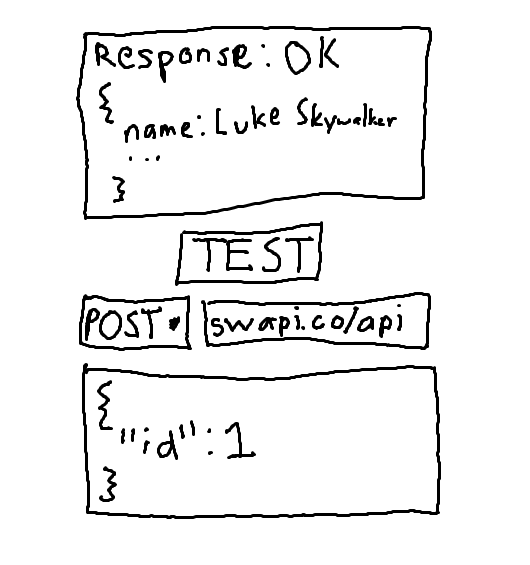 Response: OK
{
name: Luke Skywalker
...
}
TEST
POST
swapi.co/api
{
"id": 1
}